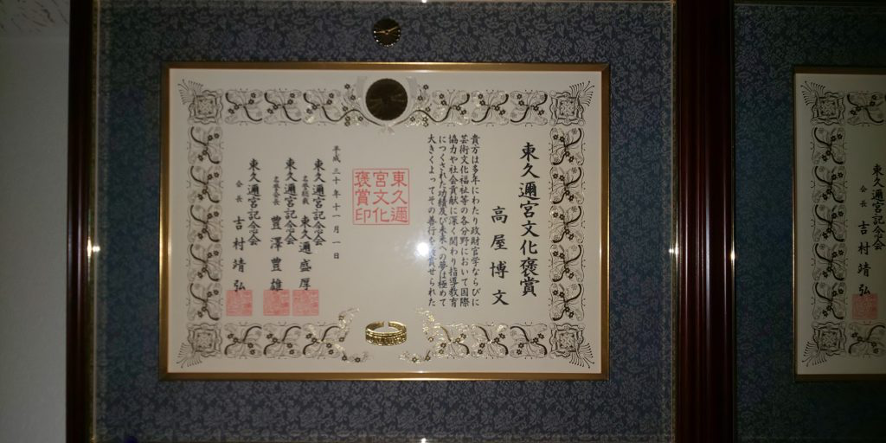 東久邇宮文化褒賞
高屋博文
貴方は多年にわたり政財官学ならびに
芸術文化福祉等の各分野において国際
協力や社会貢献に深く関わり指導教育
につくされた功績及び未来への夢は極めて
大きくよってその善行を
せられた
東久邇
宮文化
褒賞印
平成三十年十一月一日
東久邇宮記念会
名誉総裁 東久邇盛厚
東久邇宮記念会
名誉会長 豊澤豊雄
東久邇宮記念会
会長 吉村靖弘
東久邇宮記念会
会長 吉村靖弘